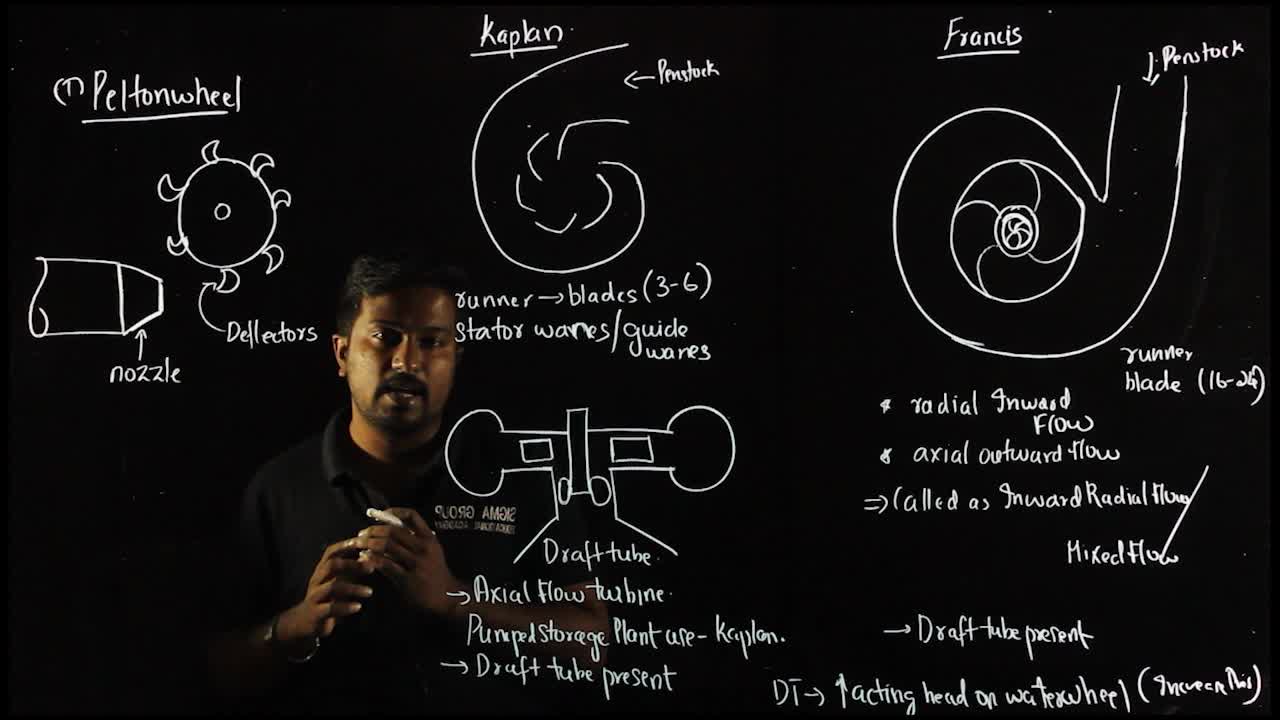 (1) Peltonwheel
nozzle
Dellectors
Kaplan
Penstock
runner → blades (3-6)
stator wanes/guide
wanes
Draft tube
→ Axial flow turbine.
Pumped storage Plant use - Kaplan.
→ Draft tube present
SIGMA GROUP
Francis
↓ Penstock
runner
blade (16-24)
* radial Inward
Flow
* axial outward flow
⇒ Called as Inward Radial flow
Mixed flow
→ Draft tube present
DT → ↑ acting head on waterwheel